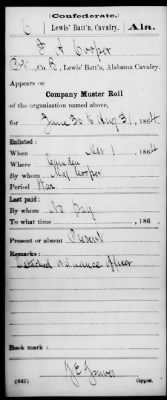 (Confederate.)
6 Lewis' Batt'n, Cavalry. Ala.
F A Cooper
Co. B, Lewis' Batt'n, Alabama Cavalry.
Appears on
Company Muster Roll
of the organization named above,
for June 30 to Aug 31, 1864
Enlisted:
When Mar 1, 1864
Where Camden
By whom Maj Cooper
Period War
Last paid:
By whom No pay
To what time , 186 .
Present or absent Present
Remarks:
Detached Ordnance Officer
Book mark:
(642) Copyist.